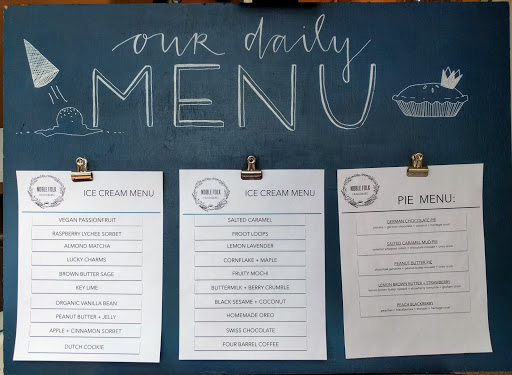 our daily
MENU
NOBLE FOLK
ICE CREAM MENU
VEGAN PASSIONFRUIT
RASPBERRY LYCHEE SORBET
ALMOND MATCHA
LUCKY CHARMS
BROWN BUTTER SAGE
KEY LIME
ORGANIC VANILLA BEAN
PEANUT BUTTER + JELLY
APPLE + CINNAMON SORBET
DUTCH COOKIE
NOBLE FOLK
ICE CREAM MENU
SALTED CARAMEL
FROOT LOOPS
LEMON LAVENDER
CORNFLAKE + MAPLE
FRUITY MOCHI
BUTTERMILK + BERRY CRUMBLE
BLACK SESAME + COCONUT
HOMEMADE OREO
SWISS CHOCOLATE
FOUR BARREL COFFEE
NOBLE FOLK
PIE MENU:
GERMAN CHOCOLATE PIE
SALTED CARAMEL MUD PIE
PEANUT BUTTER PIE
LEMON BROWN BUTTER + STRAWBERRY
PEACH BLACKBERRY